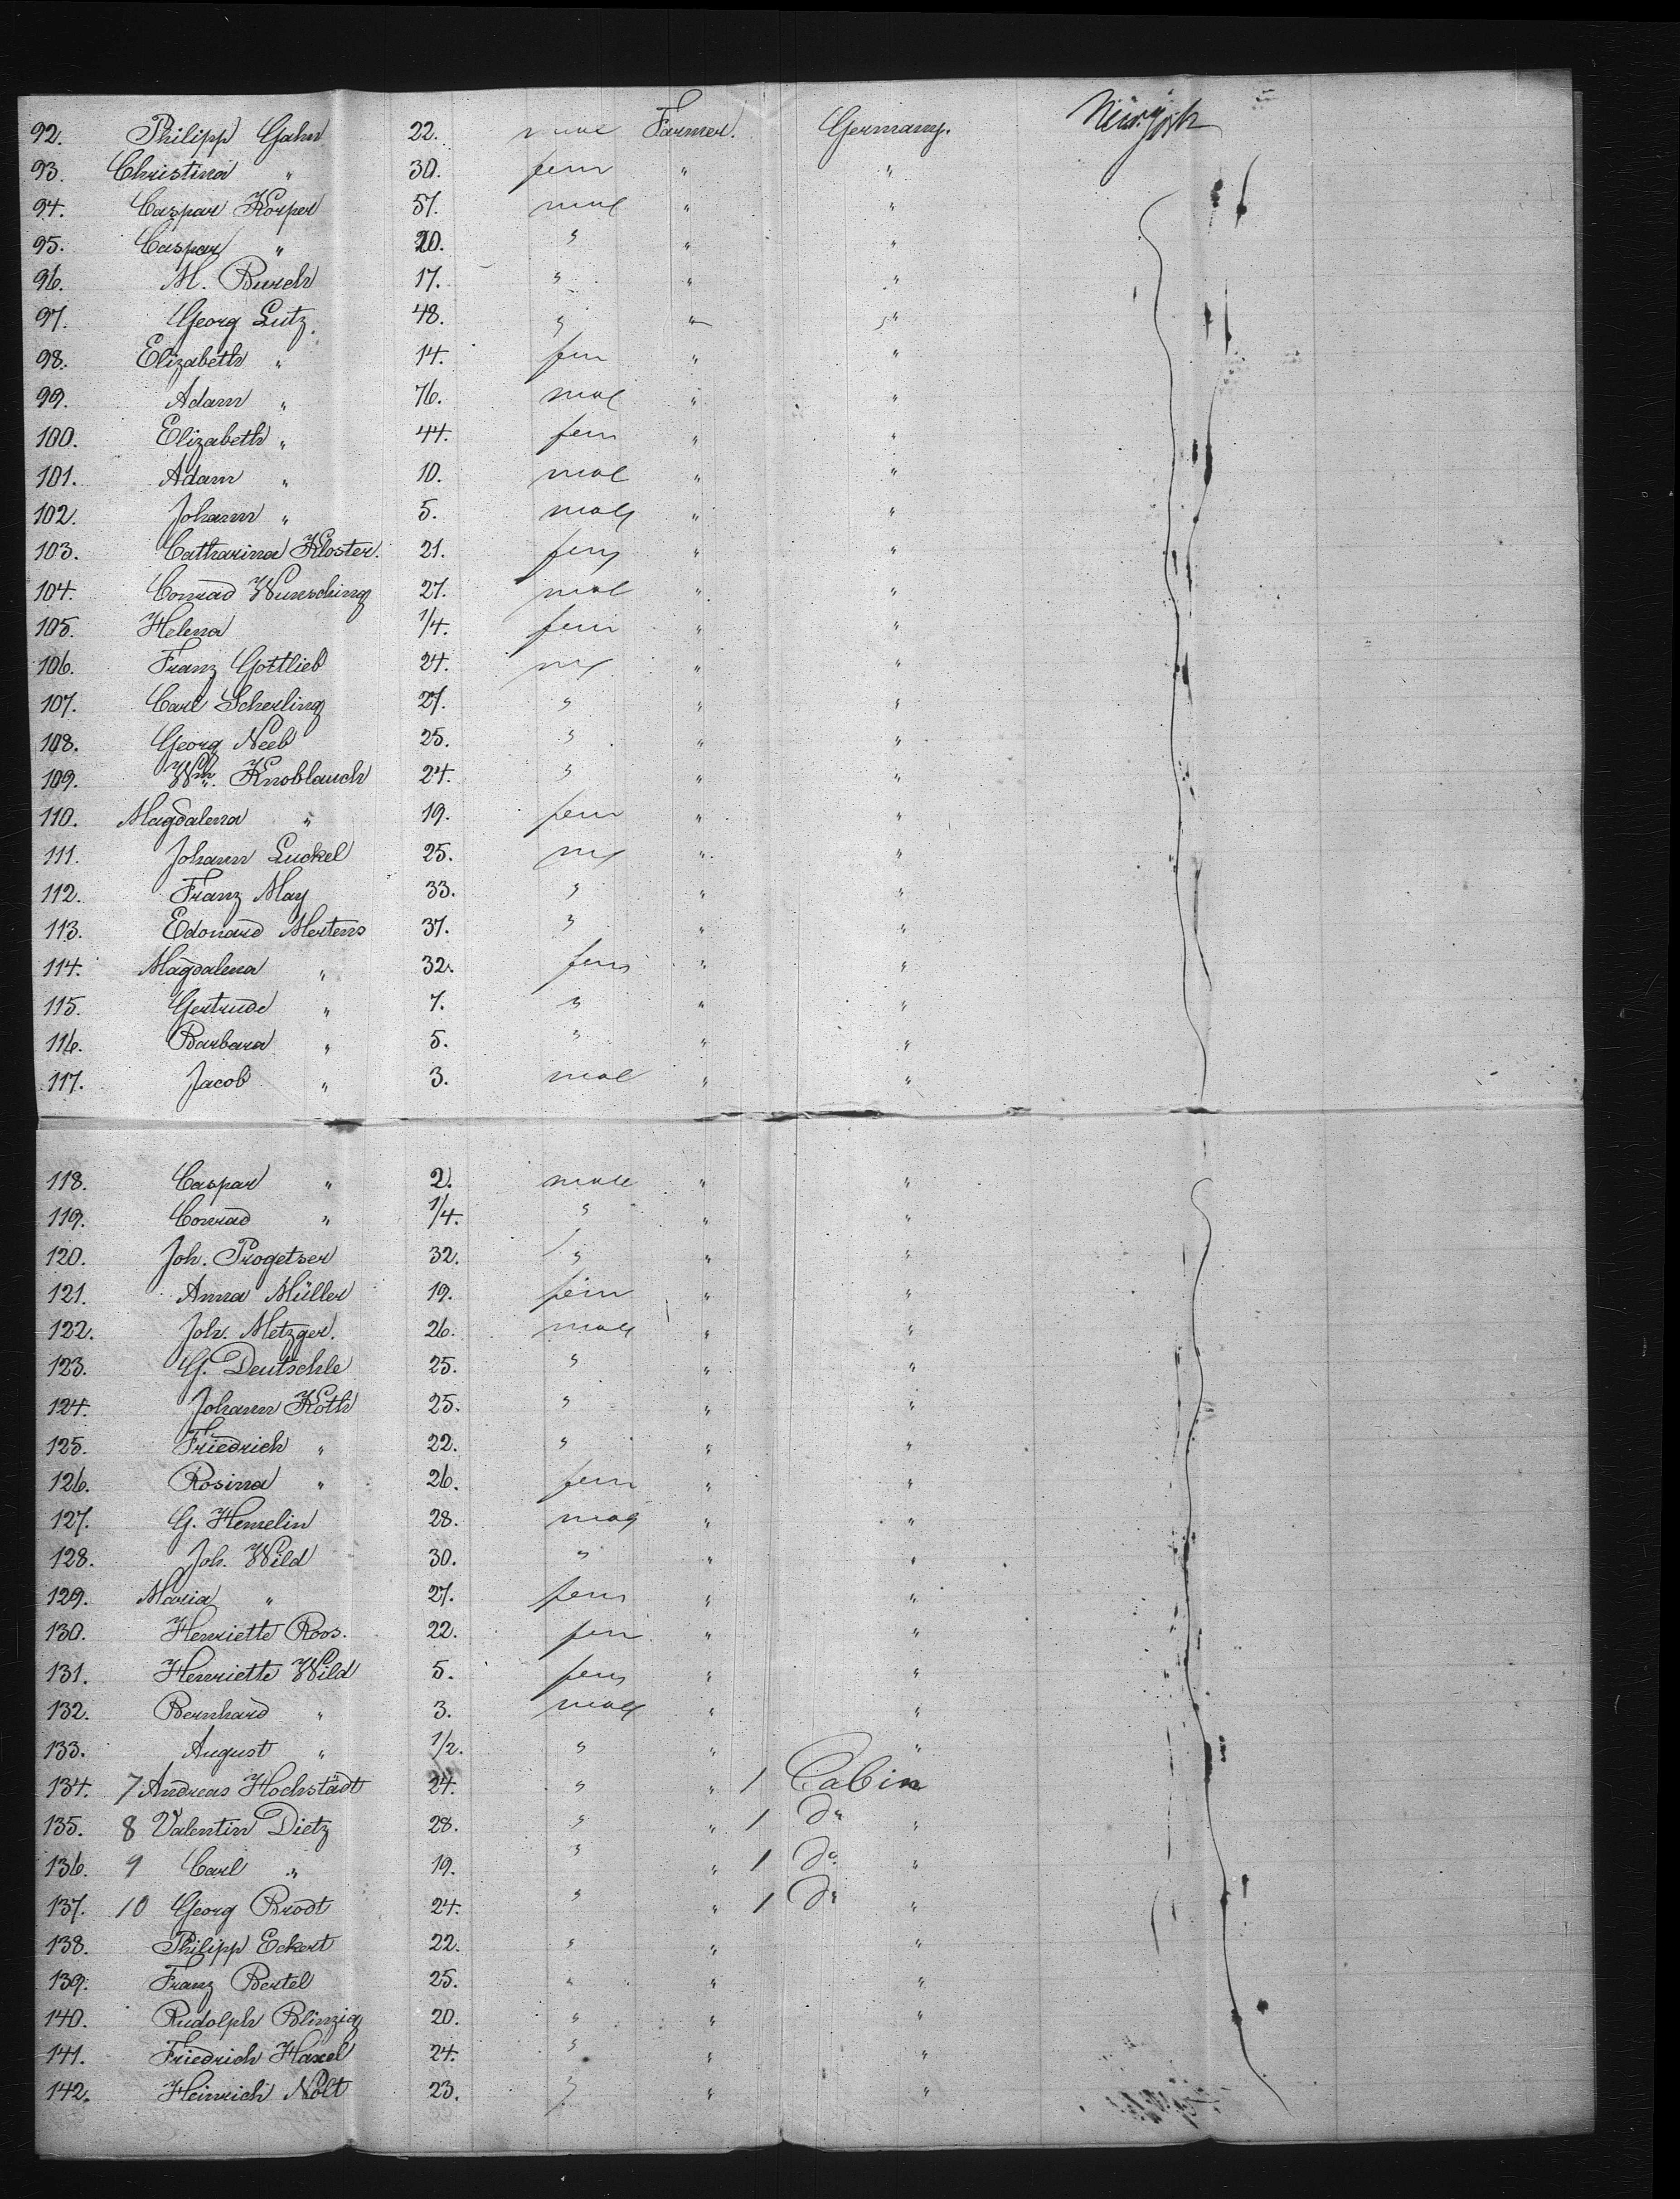 92. Philipp Gahn 22. male Farmer. Germany. New York
93. Christina " 30. fem " "
94. Caspar Körper 51. male " "
95. Caspar " 20. " " "
96. M. Bursch 17. " " "
97. Georg Lutz. 48. " " "
98. Elizabeth " 14. fem " "
99. Adam " 76. male " "
100. Elizabeth " 44. fem " "
101. Adam " 10. male " "
102. Johann " 5. male " "
103. Catharina Kloster. 21. fem " "
104. Conrad Wunsching 27. male " "
105. Helena 1/4. fem " "
106. Franz Gottlieb 24. m " "
107. Carl Scherling 27. " " "
108. Georg Neeb 25. " " "
109. Wm. Knoblauch 24. " " "
110. Magdalena " 19. fem " "
111. Johann Luckel 25. m " "
112. Franz May 33. " " "
113. Edouard Mertens 37. " " "
114. Magdalena " 32. fem " "
115. Gertrude " 7. " " "
116. Barbara " 5. " " "
117. Jacob " 3. male " "
118. Caspar " 2. male " "
119. Conrad " 1/4. " " "
120. Joh. Progetser 32. " " "
121. Anna Müller 19. fem " "
122. Joh. Metzger. 26. male " "
123. G. Deutschle 25. " " "
124. Johann Koth 25. " " "
125. Friedrich " 22. " " "
126. Rosina " 26. fem " "
127. G. Hemelin 28. male " "
128. Joh. Wild 30. " " "
129. Maria " 27. fem " "
130. Henriette Roos. 22. fem " "
131. Henriette Wild 5. fem " "
132. Bernhard " 3. male " "
133. August " 1/2. " " "
134. 7 Andreas Hochstädt 24. " " 1 Cabin "
135. 8 Valentin Dietz 28. " " 1 do "
136. 9 Carl " 19. " " 1 do "
137. 10 Georg Brodt 24. " " 1 do "
138. Philipp Eckert 22. " " "
139. Franz Bertel 25. " " "
140. Rudolph Blinzig 20. " " "
141. Friedrich Haxel 24. " " "
142. Heinrich Nölt 23. " " "